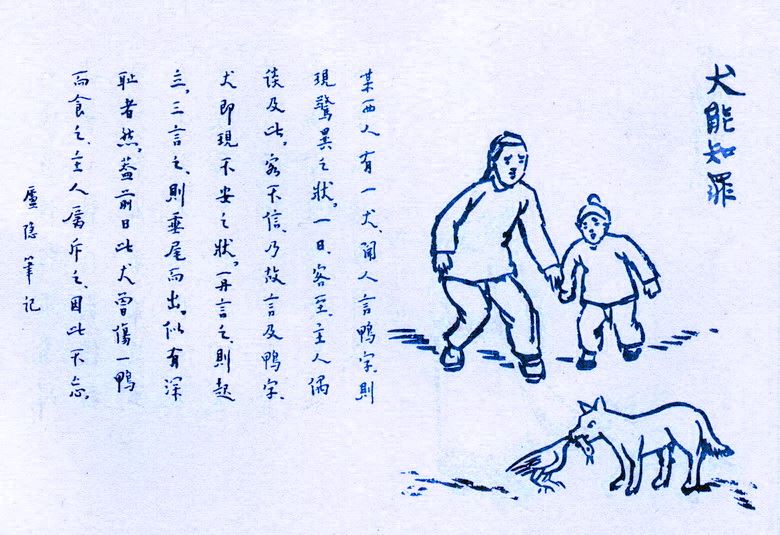 犬能知罪
某西人有一犬,聞人言鴨字,則
現驚異之狀,一日,客至,主人偶
談及此,客不信,乃故言及鴨字,
犬即現不安之狀,再言之,則起
立,三言之,則垂尾而出。似有深
恥者然,蓋前日此犬曾傷一鴨
而食之,主人厲斥之,因此不忘。
廬隱筆记